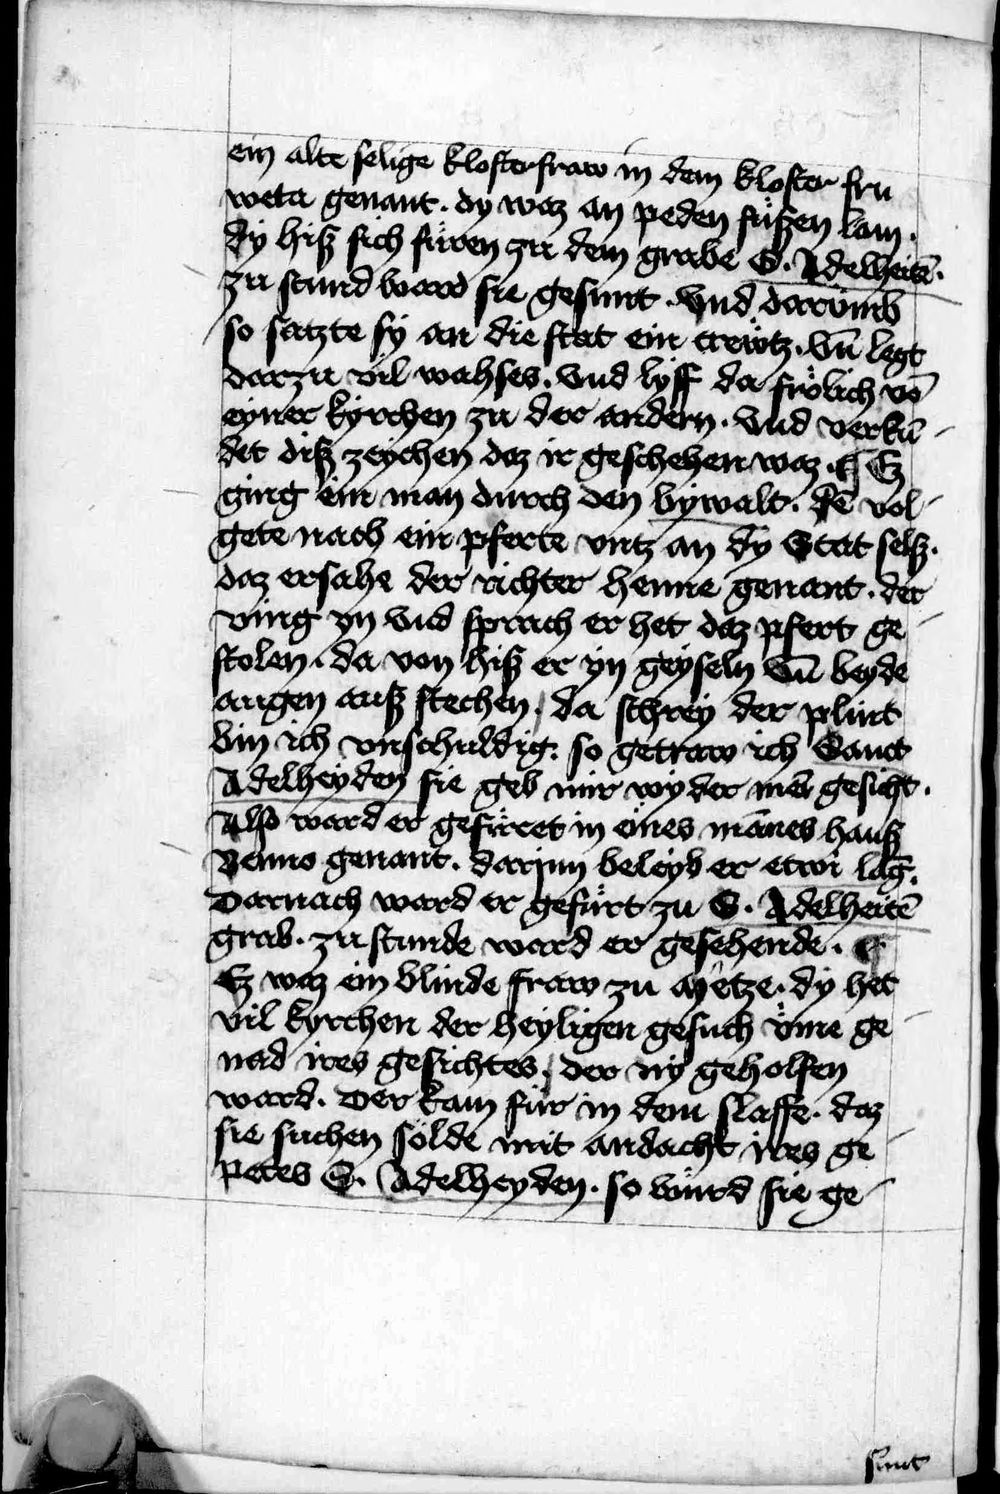 ein alte selige klosterfraw in dem kloster fru
weta genant. dy waz an peden füßen lam.
dy hiß sich füren zu dem grabe S. Adelheitē.
zu stund ward sie gesunt. Vnd darümb
so satzte sy an die stat ein crewtz. Vn̄ legt
darzu vil wahses. Vnd lyff da frölich vō
eyner kyrchen zu der andern. Vnd verkū
det diß zeychen daz ir geschehen waz. Ez
ging ein man durch den bywalt. dē vol
gete nach ein pferte vntz an dy Stat selß.
daz ersahe der richter henne genant. der
ving yn vnd sprach er het daz pfert ge
stolen. da von hiß er yn geyseln Vn̄ beyde
augen auß stechen. da schrey der plint
bin ich vnschuldig: so getraw ich Sanct
Adelheyden sie geb mir wyder mēi gesicht.
Also ward er gefüret in eines mānes hauß
Benno genant. darjnn beleyb er etwi lāg.
Darnach ward er gefürt zu S. Adelheitē
grab. zu stunde ward er gesehende.
Ez waz ein blinde fraw zu Mētze. dy het
vil kyrchen der heyligen gesuch vme ge
nad ires gesichtes, der ny geholfen
ward. Der kam für in dem slaffe. daz
sie suchen sölde mit andacht ires ge
petes S. Adelheyden. so würd sie ge
sunt